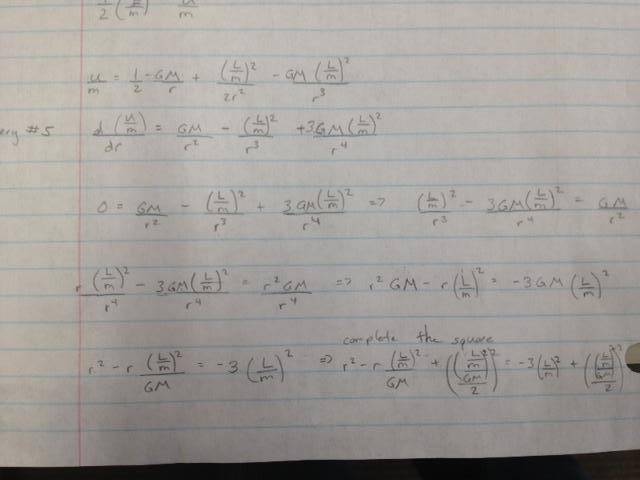 1/2 ( /m) u/m
u/m = 1/2 - GM/r + (L/m)²/2r² - GM(L/m)²/r³
#5 d/dr (u/m) = GM/r² - (L/m)²/r³ + 3GM(L/m)²/r⁴
0 = GM/r² - (L/m)²/r³ + 3GM(L/m)²/r⁴ => (L/m)²/r³ - 3GM(L/m)²/r⁴ = GM/r²
r(L/m)²/r⁴ - 3GM(L/m)²/r⁴ = r²GM/r⁴ => r²GM - r(L/m)² = -3GM(L/m)²
complete the square
r² - r(L/m)²/GM = -3(L/m)² => r² - r(L/m)²/GM + (((L/m)²/GM)/2)² = -3(L/m)² + (((L/m)²/GM)/2)²